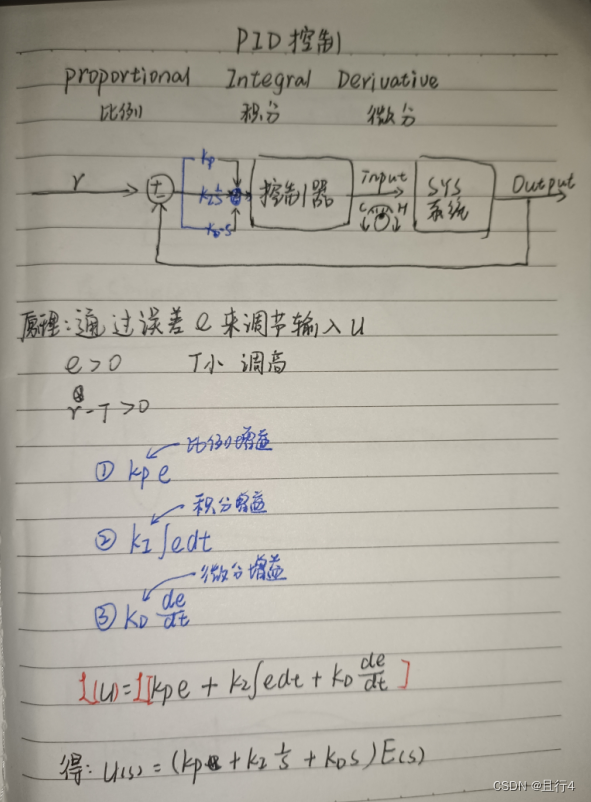 PID 控制
Proportional Integral Derivative
比例 积分 微分
r
+
−
kp
kI 1/s
kD·s
控制器
Input
C H
SYS
系统
Output
原理:通过误差 e 来调节输入 u
e > 0 T小 调高
r - T > 0
比例增益
① kp e
积分增益
② kI ∫edt
微分增益
③ kD de/dt
L(u) = L[kp e + kI ∫edt + kD de/dt]
得: U(s) = (kp + kI 1/s + kD s) E(s)
CSDN @且行4